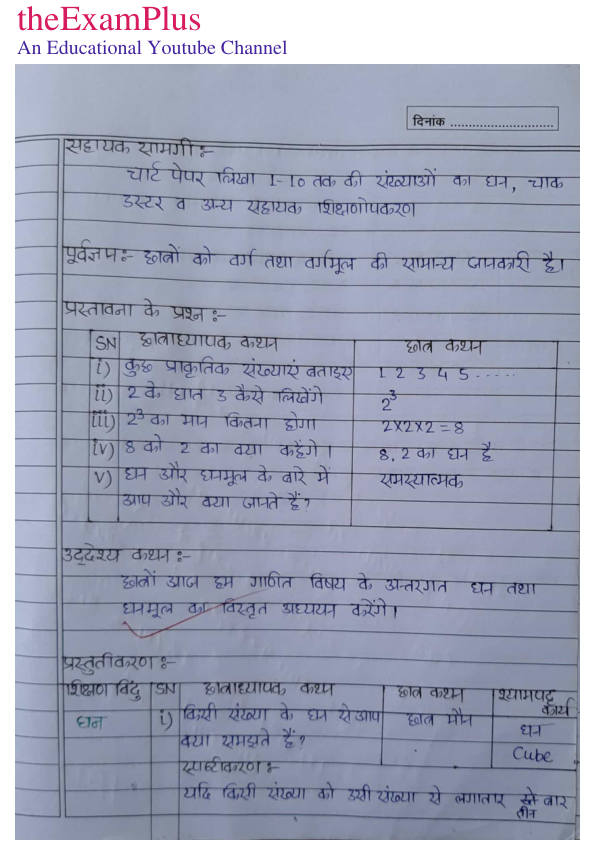 theExamPlus
An Educational Youtube Channel
दिनांक ............................
सहायक सामग्री :-
चार्ट पेपर लिखा 1-10 तक की संख्याओं का घन, चाक
डस्टर व अन्य सहायक शिक्षणोपकरण
पूर्वज्ञान :- छात्रों को वर्ग तथा वर्गमूल की सामान्य जानकारी है।
प्रस्तावना के प्रश्न :-
SN छात्राध्यापक कथन छात्र कथन
i) कुछ प्राकृतिक संख्याएं बताइए 1 2 3 4 5 .....
ii) 2 के घात 3 कैसे लिखेंगे 2³
iii) 2³ का मान कितना होगा 2×2×2 = 8
iv) 8 को 2 का क्या कहेंगे। 8, 2 का घन है
v) घन और घनमूल के बारे में समस्यात्मक
आप और क्या जानते हैं?
उद्देश्य कथन :-
छात्रों आज हम गणित विषय के अन्तरगत घन तथा
घनमूल का विस्तृत अध्ययन करेंगे।
प्रस्तुतीकरण :-
शिक्षण बिंदु SN छात्राध्यापक कथन छात्र कथन श्यामपट्ट कार्य
घन i) किसी संख्या के घन से आप छात्र मौन घन
क्या समझते हैं? Cube
स्पष्टीकरण :-
यदि किसी संख्या को उसी संख्या से लगातार तीन बार